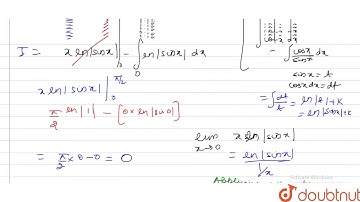 I = x ln|sinx| |₀ - ∫₀ ln|sinx| dx
x ln|sinx| |₀^π/2
π/2 ln|1| - [0 x ln|sin0|]
= π/2 x 0 - 0 = 0
- ∫ cosx/sinx dx
sinx = t
cosx dx = dt
= ∫ dt/t = ln|t| + K
= ln|sinx| + K
lim x→0 x ln|sinx|
= ln|sinx| / 1/x
Activate Windows
doubtnut